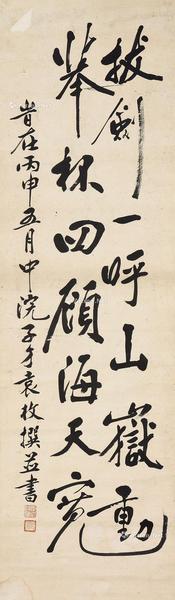 拔劍一呼山嶽動
舉杯四顧海天寬
旹在丙申五月中浣子才袁枚撰並書